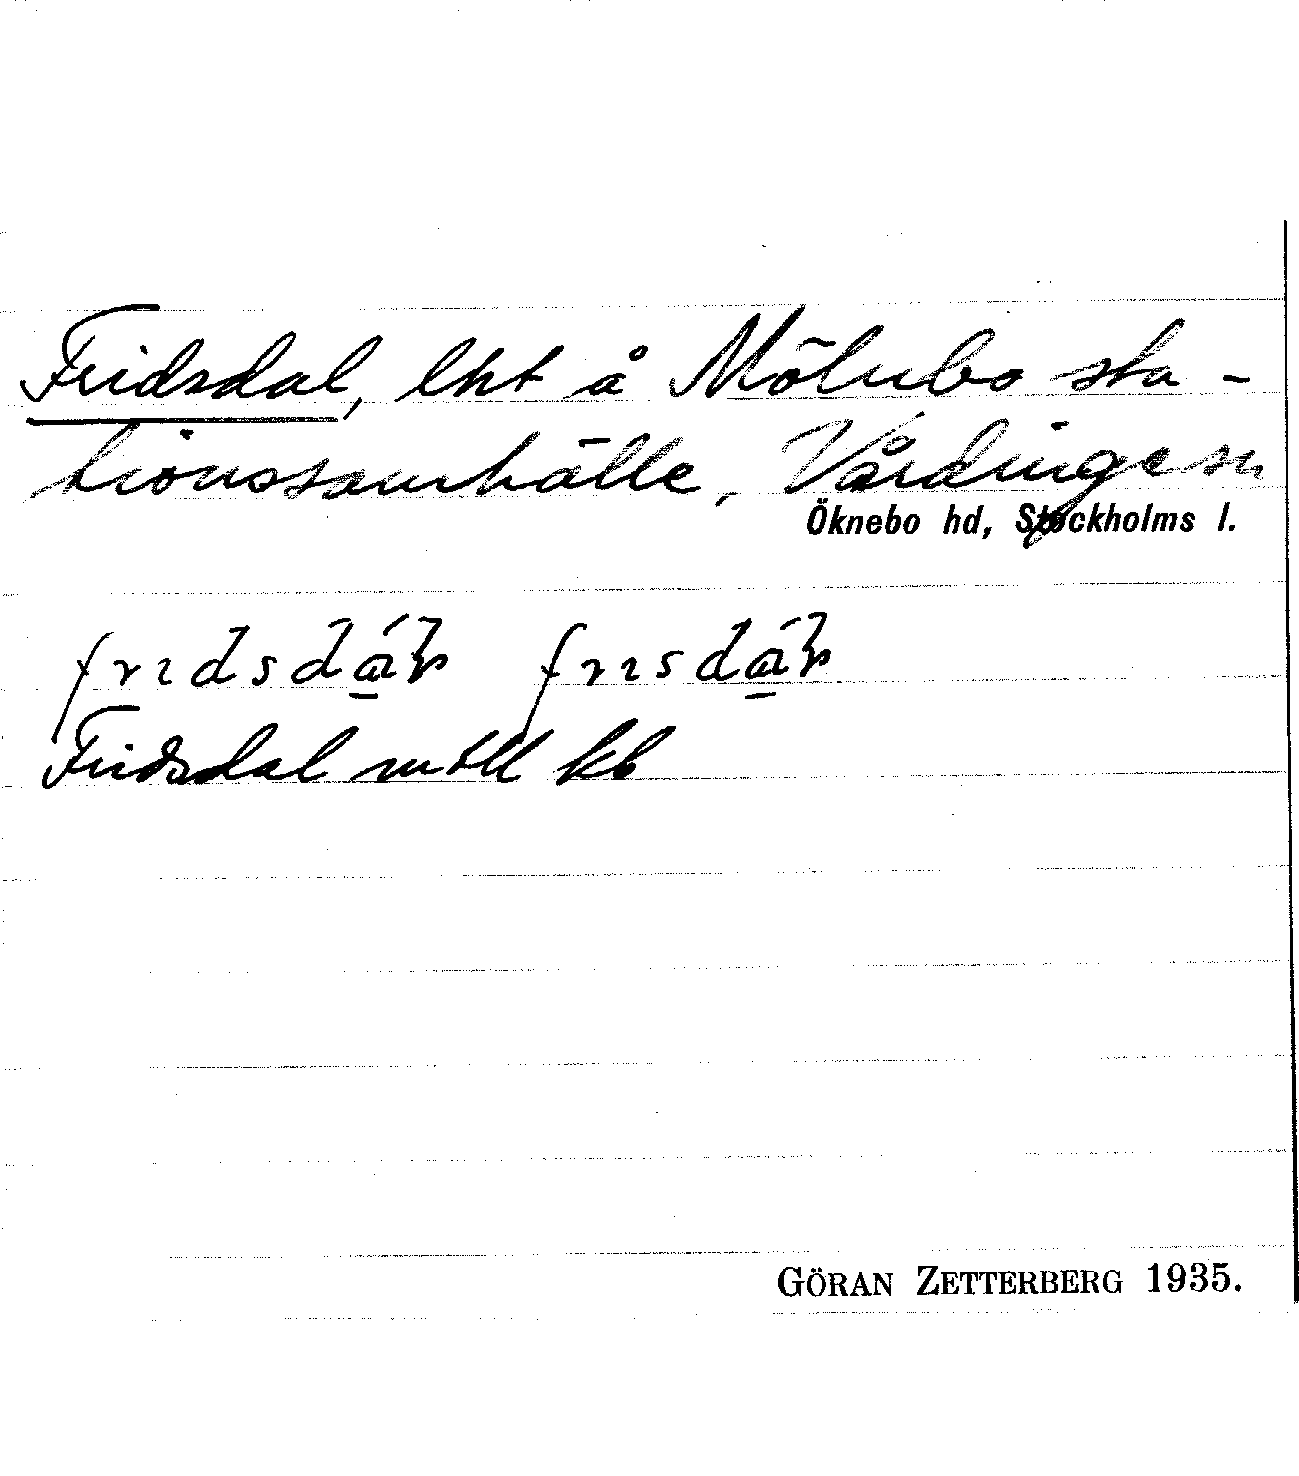 Fridsdal, lht å Mölnbo sta-
tionssamhälle, Vårdinge sn
Öknebo hd, Stockholms l.
frıdsdál frısdál
Fridsdal kb
GÖRAN ZETTERBERG 1935.